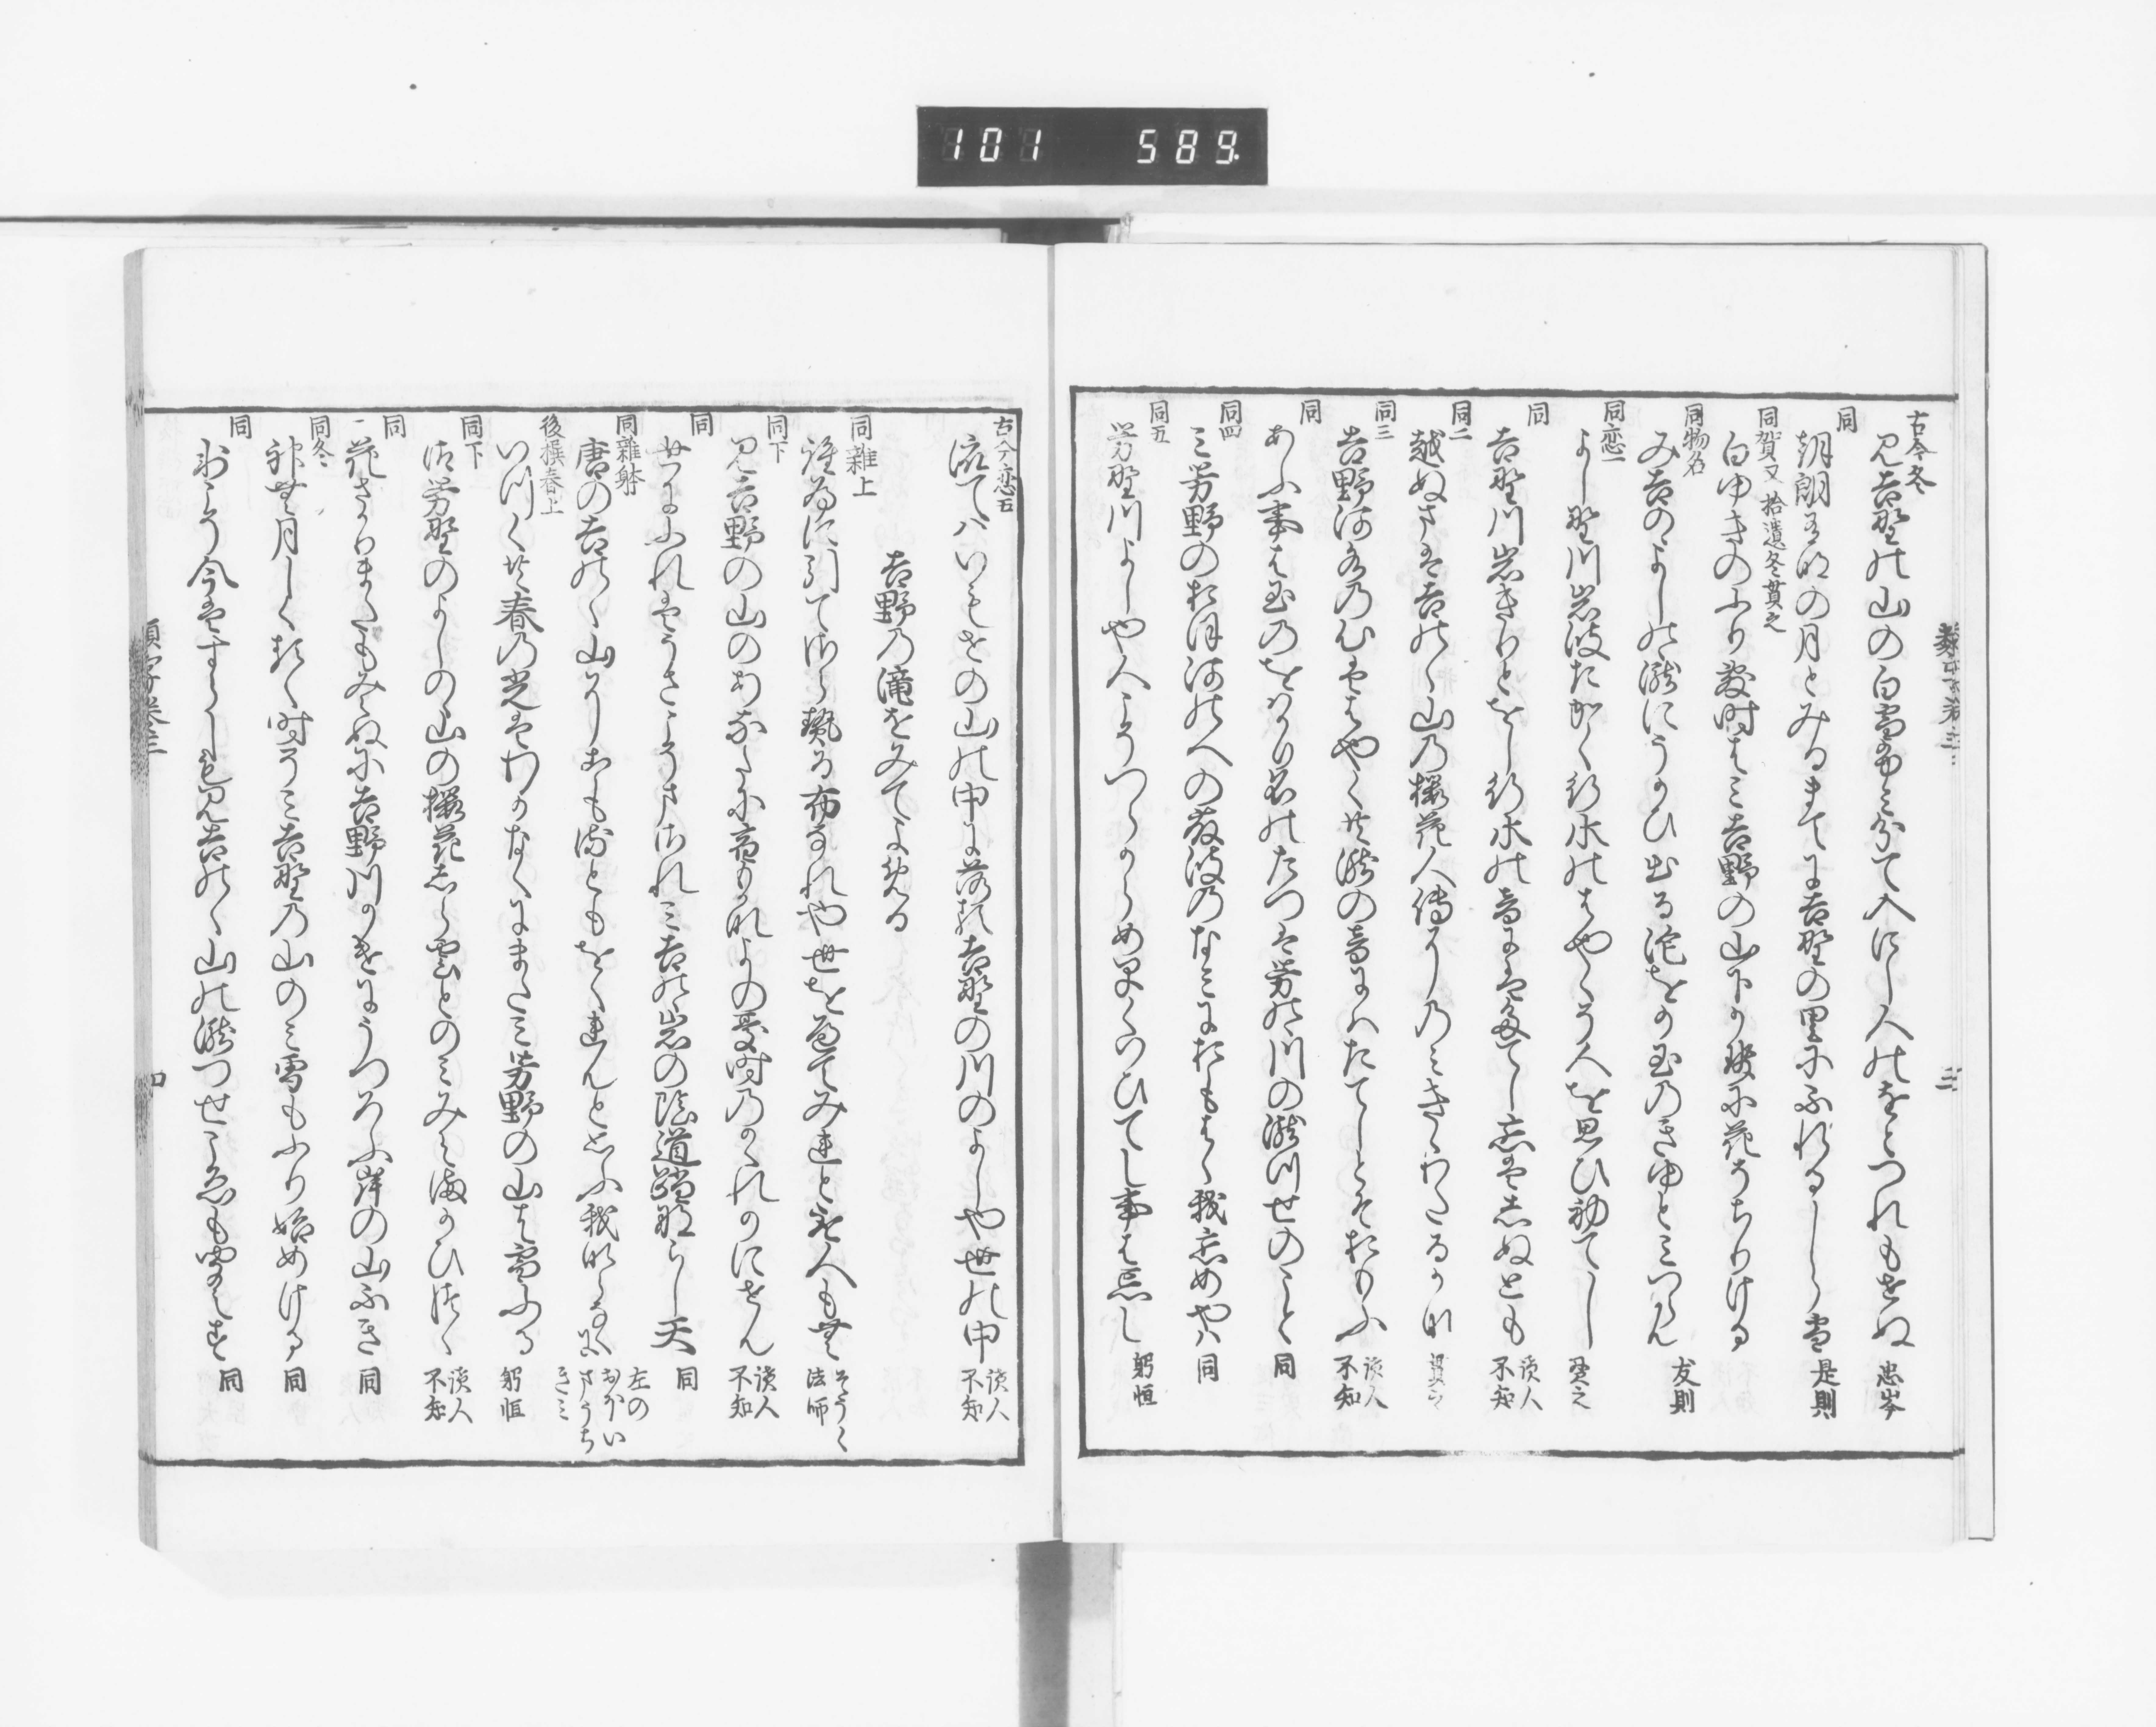 101 589.
類字巻三
三
古今冬
見吉野の山の白雪ふみ分て入にし人のをとつれもせぬ 忠岑
同
朝朗有明の月とみるまてに吉野の里にふれるしら雪 是則
同賀又拾遺冬貫之
白ゆきのふりしく時はみ吉野の山下風に花そちりける
同物名
み吉のゝよしのゝ瀧にうかひ出る泡をか玉のきゆとみつらん 友則
同恋一
よし野川岩波たかく行水のはやくそ人を思ひ初てし 貫之
同
吉野川岩きりとをし行水の音にはたてし恋は志ぬとも 読人不知
同二
越ぬまは吉のゝ山の桜花人伝にのみきゝわたるかな 貫之
同三
吉野河水の心ははやく共瀧の音にはたてしとそおもふ 読人不知
同
あふ事は玉のをはかり名のたつは芳のゝ川の瀧川せのこと 同
同四
三芳野のおほ河のへの藤波のなみにおもはゝ我恋めやは 同
同五
芳野川よしや人こそつらからめ早くいひてし事は忘し 躬恒
古今恋五
流てはいもせの山の中に落る吉野の川のよしや世の中 読人不知
吉野の滝をみてよめる
同雑上
誰為に引てさらせる布なれや世をへてみれととる人も無 そうく法師
同下
み吉野の山のあなたに宿もかなよの憂時のかくれかにせん 読人不知
同
世にふれはうさこそまされみ吉のゝ岩の陰道踏ならしてん 同
同雑躰
唐の吉のゝ山にこもるともをくれんと思ふ我ならなくに 左のおほいまうちきみ
後撰春上
いつく共春の光はわかなくにまたみ芳野の山は雪ふる 躬恒
同下
み芳野のよしのゝ山の桜花しら雲とのみみえまかひつゝ 読人不知
同
花さかりまたもみなくに吉野川かけにうつろふ岸の山ふき 同
同冬
神無月しくるゝ時そみ吉野の山のみ雪もふり始めける 同
同
年ふ今はすゝし見吉のゝ山の瀧つせこゑも聞えす 同
類字巻三
四